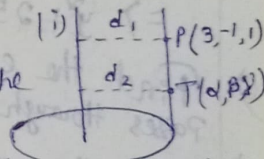 (i) d₁ P(3,-1,1)
he d₂ T(α,β,γ)